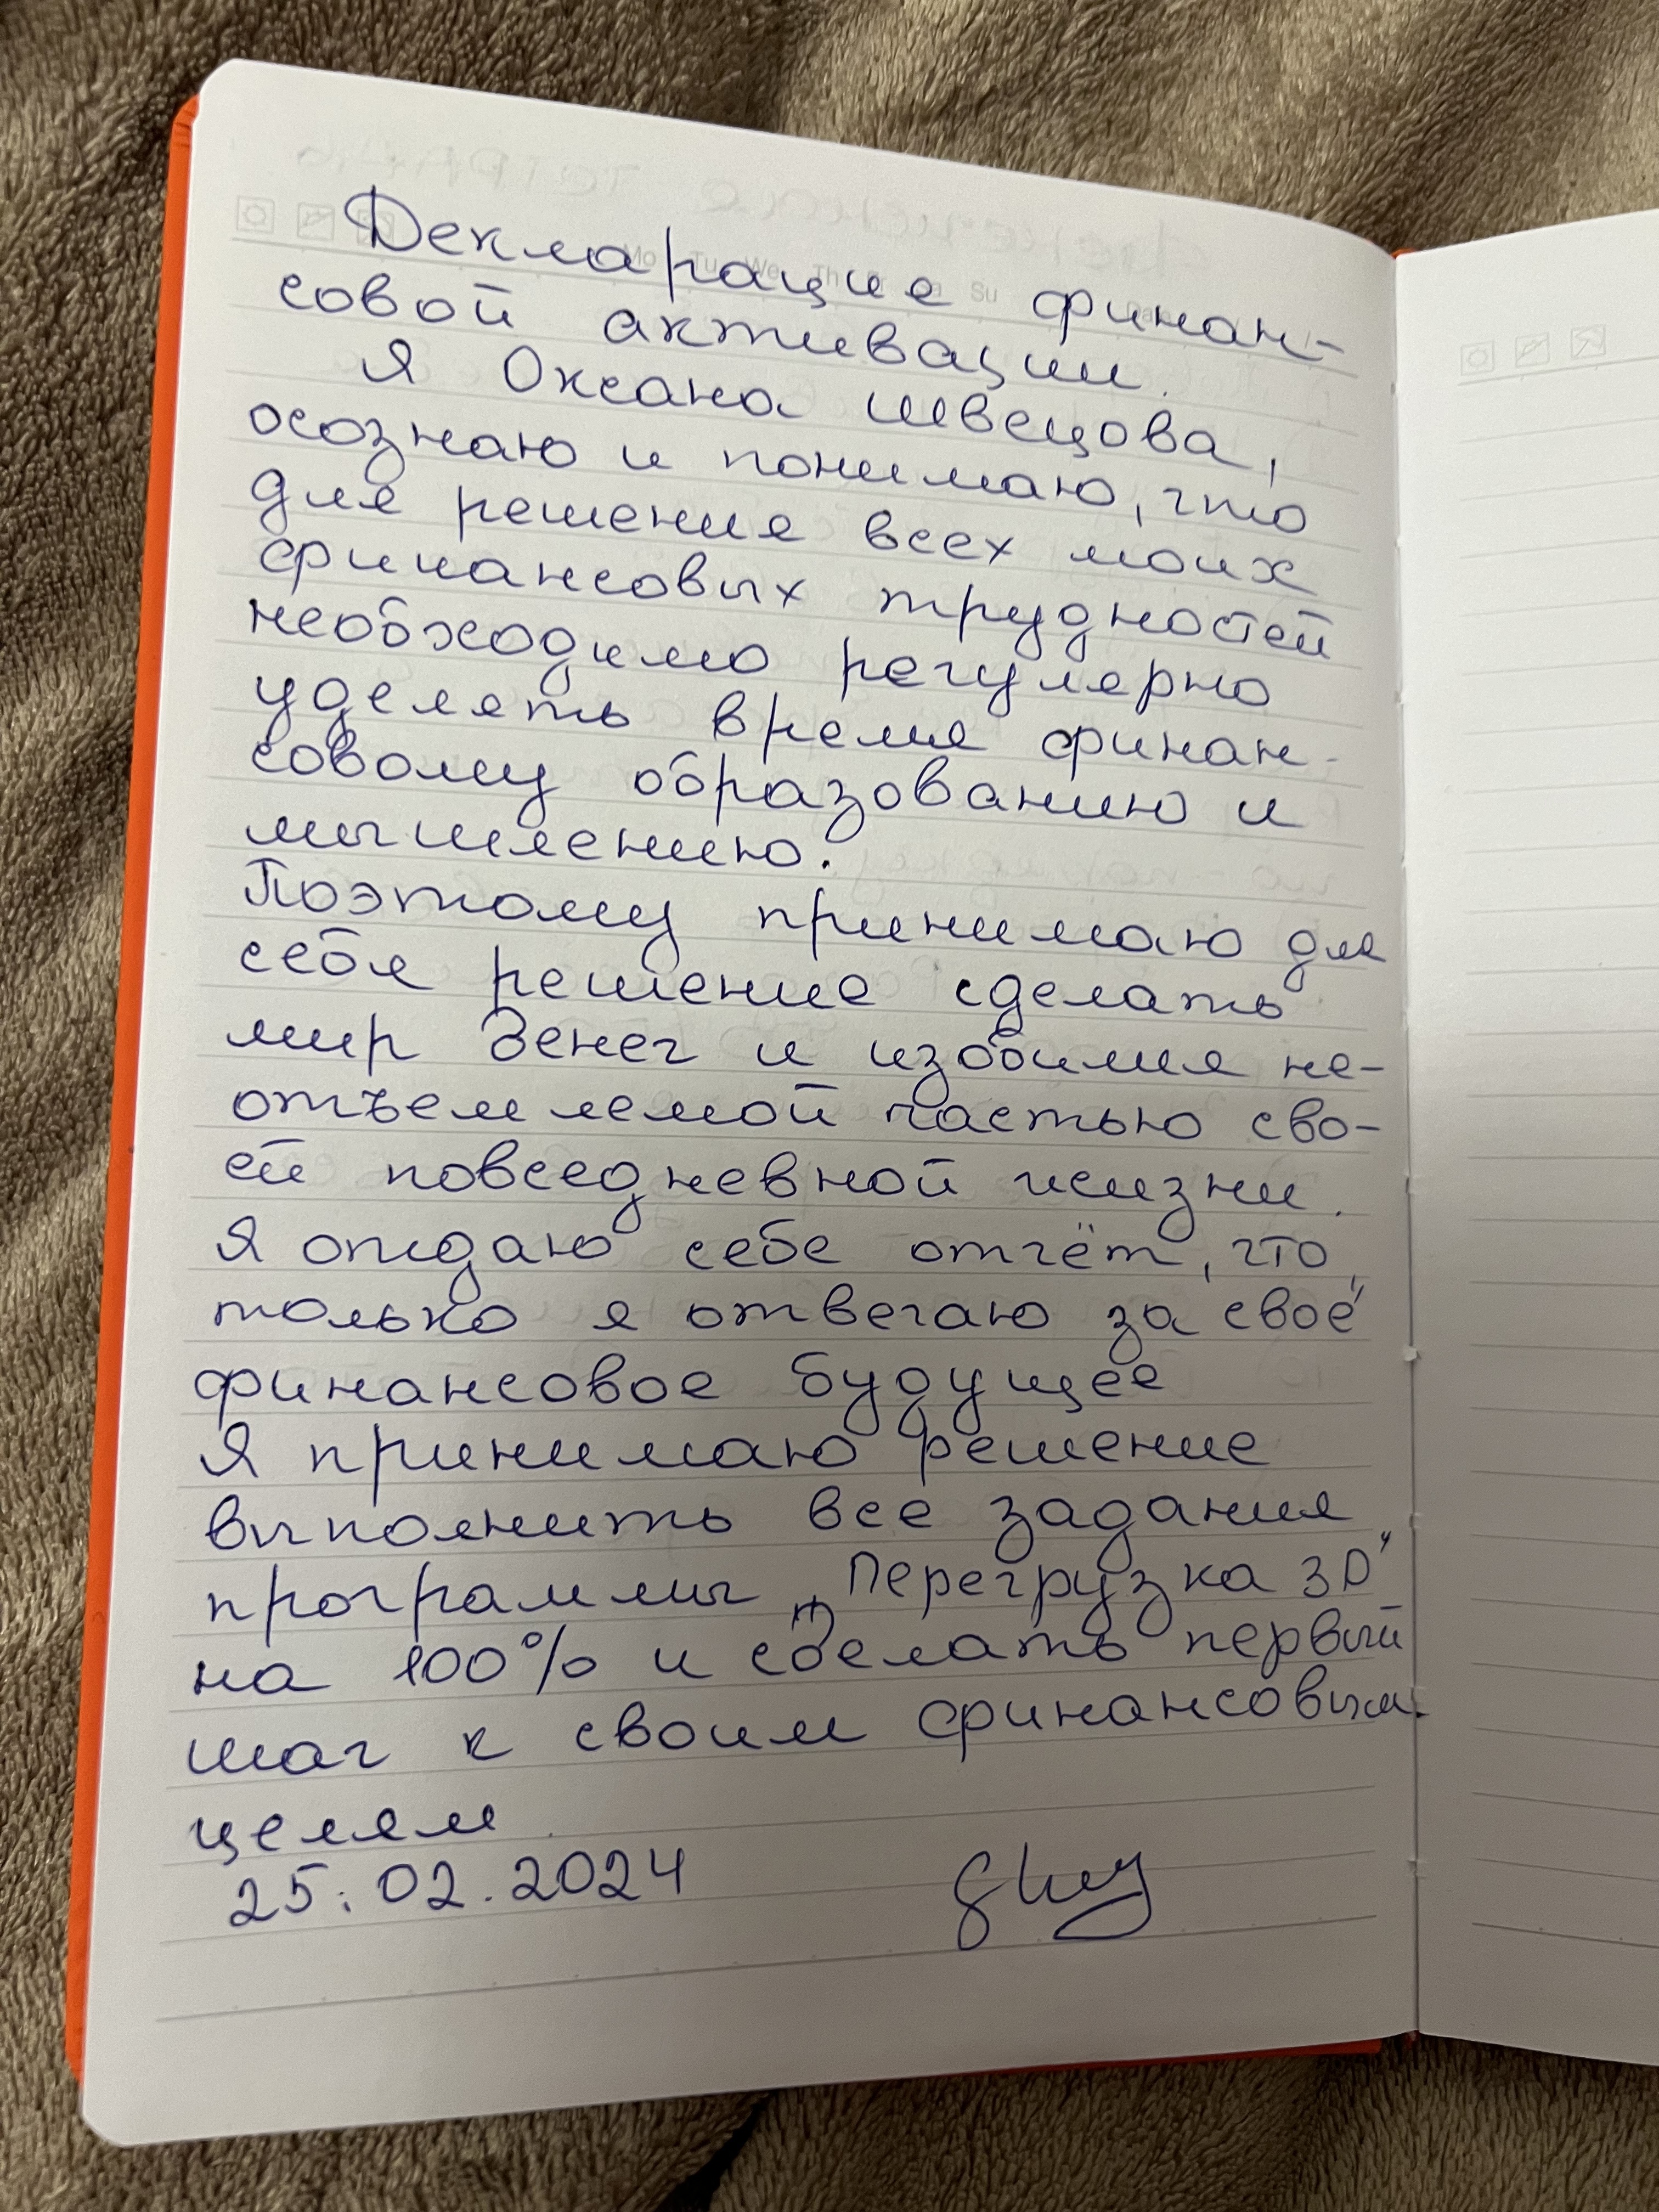 Декларация финан-
совой активации.
Я Оксана Швецова,
осознаю и понимаю, что
для решения всех моих
финансовых трудностей
необходимо регулярно
уделять время финан-
совому образованию и
мышлению.
Поэтому принимаю для
себя решение сделать
мир Денег и изобилия не-
отъемлемой частью сво-
ей повседневной жизни.
Я отдаю себе отчёт, что
только я отвечаю за своё
финансовое будущее
Я принимаю решение
выполнить все задания
программы „Перегрузка 3D"
на 100% и сделать первый
шаг к своим финансовым
целям.
25.02.2024